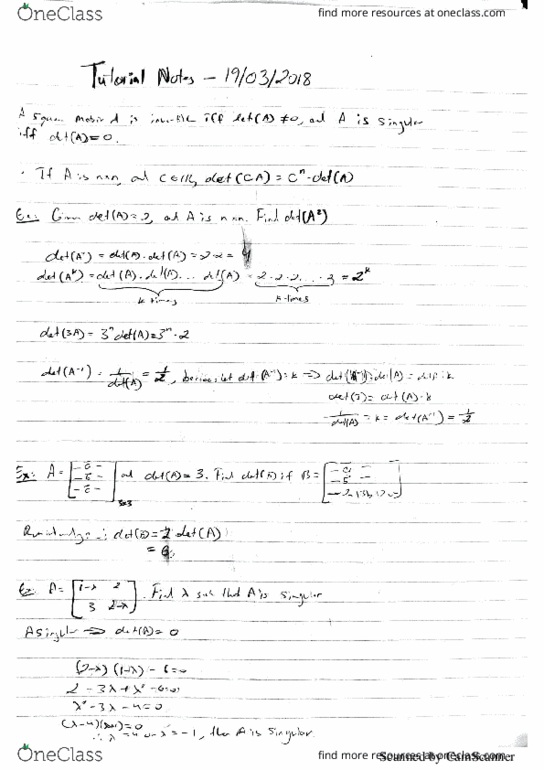 OneClass find more resources at oneclass.com
Tutorial Notes - 19/03/2018
A square matrix A is invertible iff det(A) ≠ 0, and A is singular
iff det(A) = 0.
· If A is nxn, and C∈R, det(CA) = Cⁿ·det(A)
Ex: Given det(A)=2, and A is nxn. Find det(A²)
det(A²) = det(A)·det(A) = 2·2 = 4
det(Aᵏ) = det(A)·det(A)... det(A) = 2·2·2... = 2ᵏ
k times k-times
det(3A) = 3ⁿdet(A) = 3ⁿ·2
det(A⁻¹) = 1/det(A) = 1/2, because let det(A⁻¹) = k ⇒
det(I) = det(A)·k
1/det(A) = k = det(A⁻¹) = 1/2
Ex: A = and det(A) = 3. Find det(B) if B =
3x3
det(B) = 2 det(A)
= 6
Ex: A = [1-λ 2
3 2-λ]. Find λ such that A is singular
A singular ⇒ det(A) = 0
(2-λ)(1-λ) - 6 = 0
2 - 3λ + λ² - 6 = 0
λ² - 3λ - 4 = 0
(λ-4)(λ+1) = 0
∴ λ = 4 or λ = -1, then A is singular.
OneClass find more resources at oneclass.com
Scanned by CamScanner